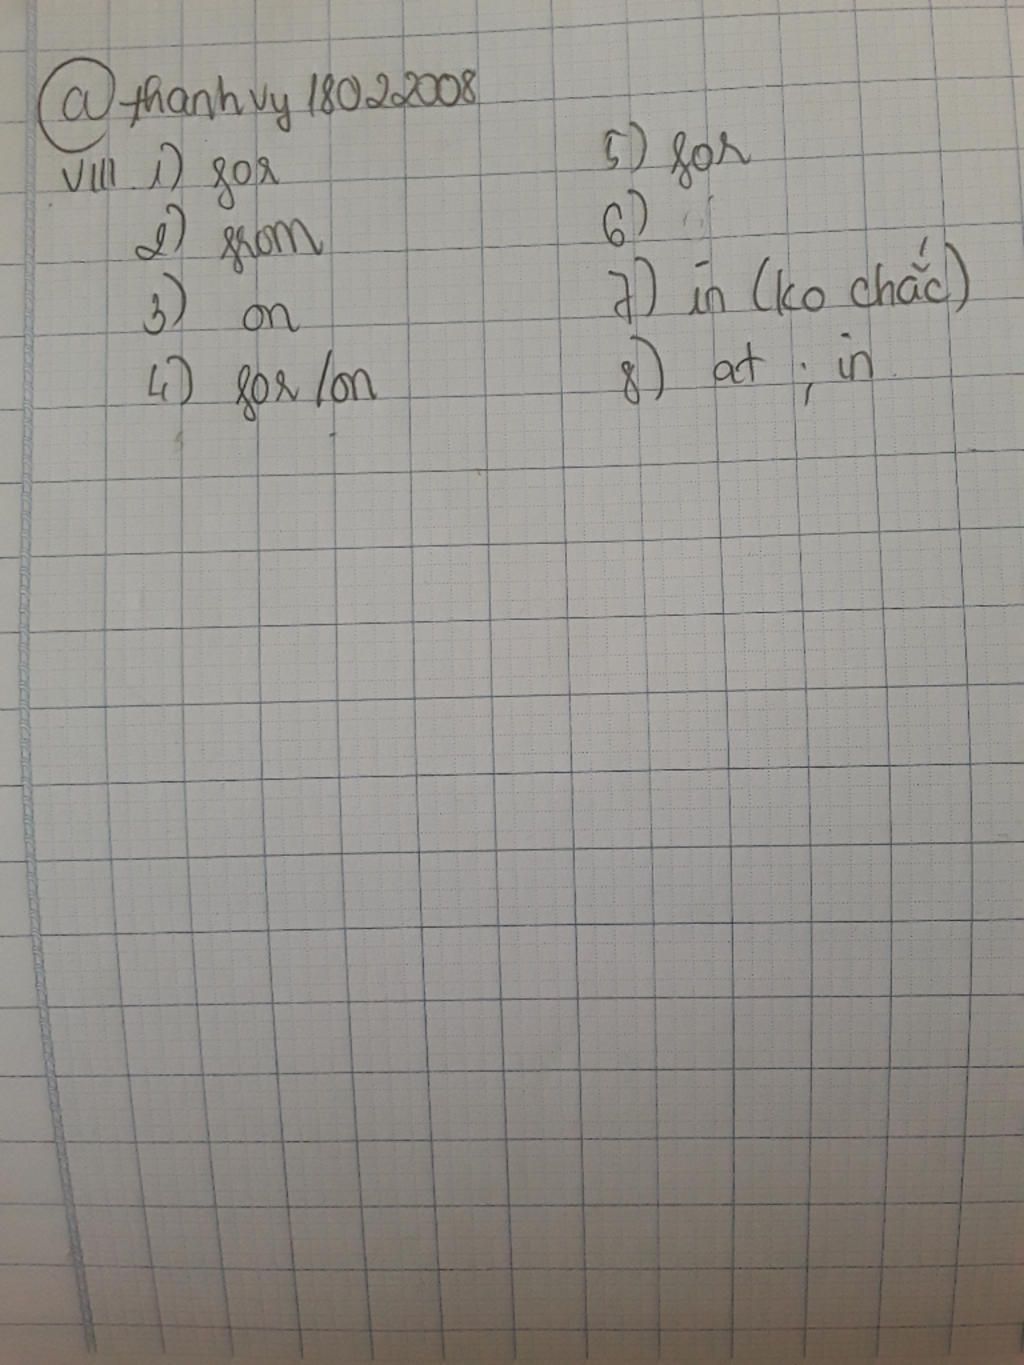 @thanhvy18022008
VIII. 1) for
2) from
3) on
4) for/on
5) for
6)
7) in (ko chắc)
8) at ; in